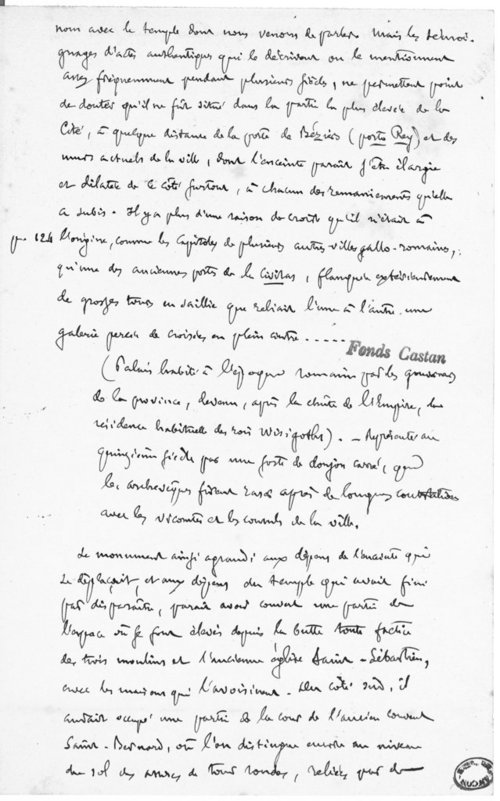 nom avec le temple dont nous venons de parler. Mais les témoi-
gnages d'actes authentiques qui le décrivent ou le mentionnent
assez fréquemment pendant plusieurs siècles, ne permettent point
de douter qu'il ne fût situé dans la partie la plus élevée de la
Cité, à quelque distance de la porte de Béziers (porte Rey) et des
murs actuels de la ville, dont l'enceinte paraît s'être élargie
et dilatée de ce côté surtout, à chacun des remaniements qu'elle
a subis. Il y a plus d'une raison de croire qu'il n'était à
124 l'origine, comme les Capitoles de plusieurs autres villes gallo-romaines,
qu'une des anciennes portes de la Civitas, flanquée extérieurement
de grosses tours en saillie que reliait l'une à l'autre une
galerie percée de croisées en plein cintre .....
Fonds Castan
(Palais habité à l'époque romaine par les gouverneurs
de la province, devenu, après la chute de l'Empire, la
résidence habituelle des rois Wisigoths). - Représenté au
quinzième siècle par une sorte de donjon carré, que
les archevêques firent raser après de longues contestations
avec les vicomtes et les consuls de la ville.
Le monument ainsi agrandi aux dépens de l'enceinte qui
se déplaçait, et aux dépens du temple qui avait fini
par disparaître, paraît avoir couvert une partie de
l'espace où se sont élevés depuis la butte toute factice
des trois moulins et l'ancienne église Saint-Sébastien,
avec les maisons qui l'avoisinent. Du côté sud, il
aurait occupé une partie de la cour de l'ancien couvent
Saint-Bernard, où l'on distingue encore au niveau
du sol des assises de tours rondes, reliées par de